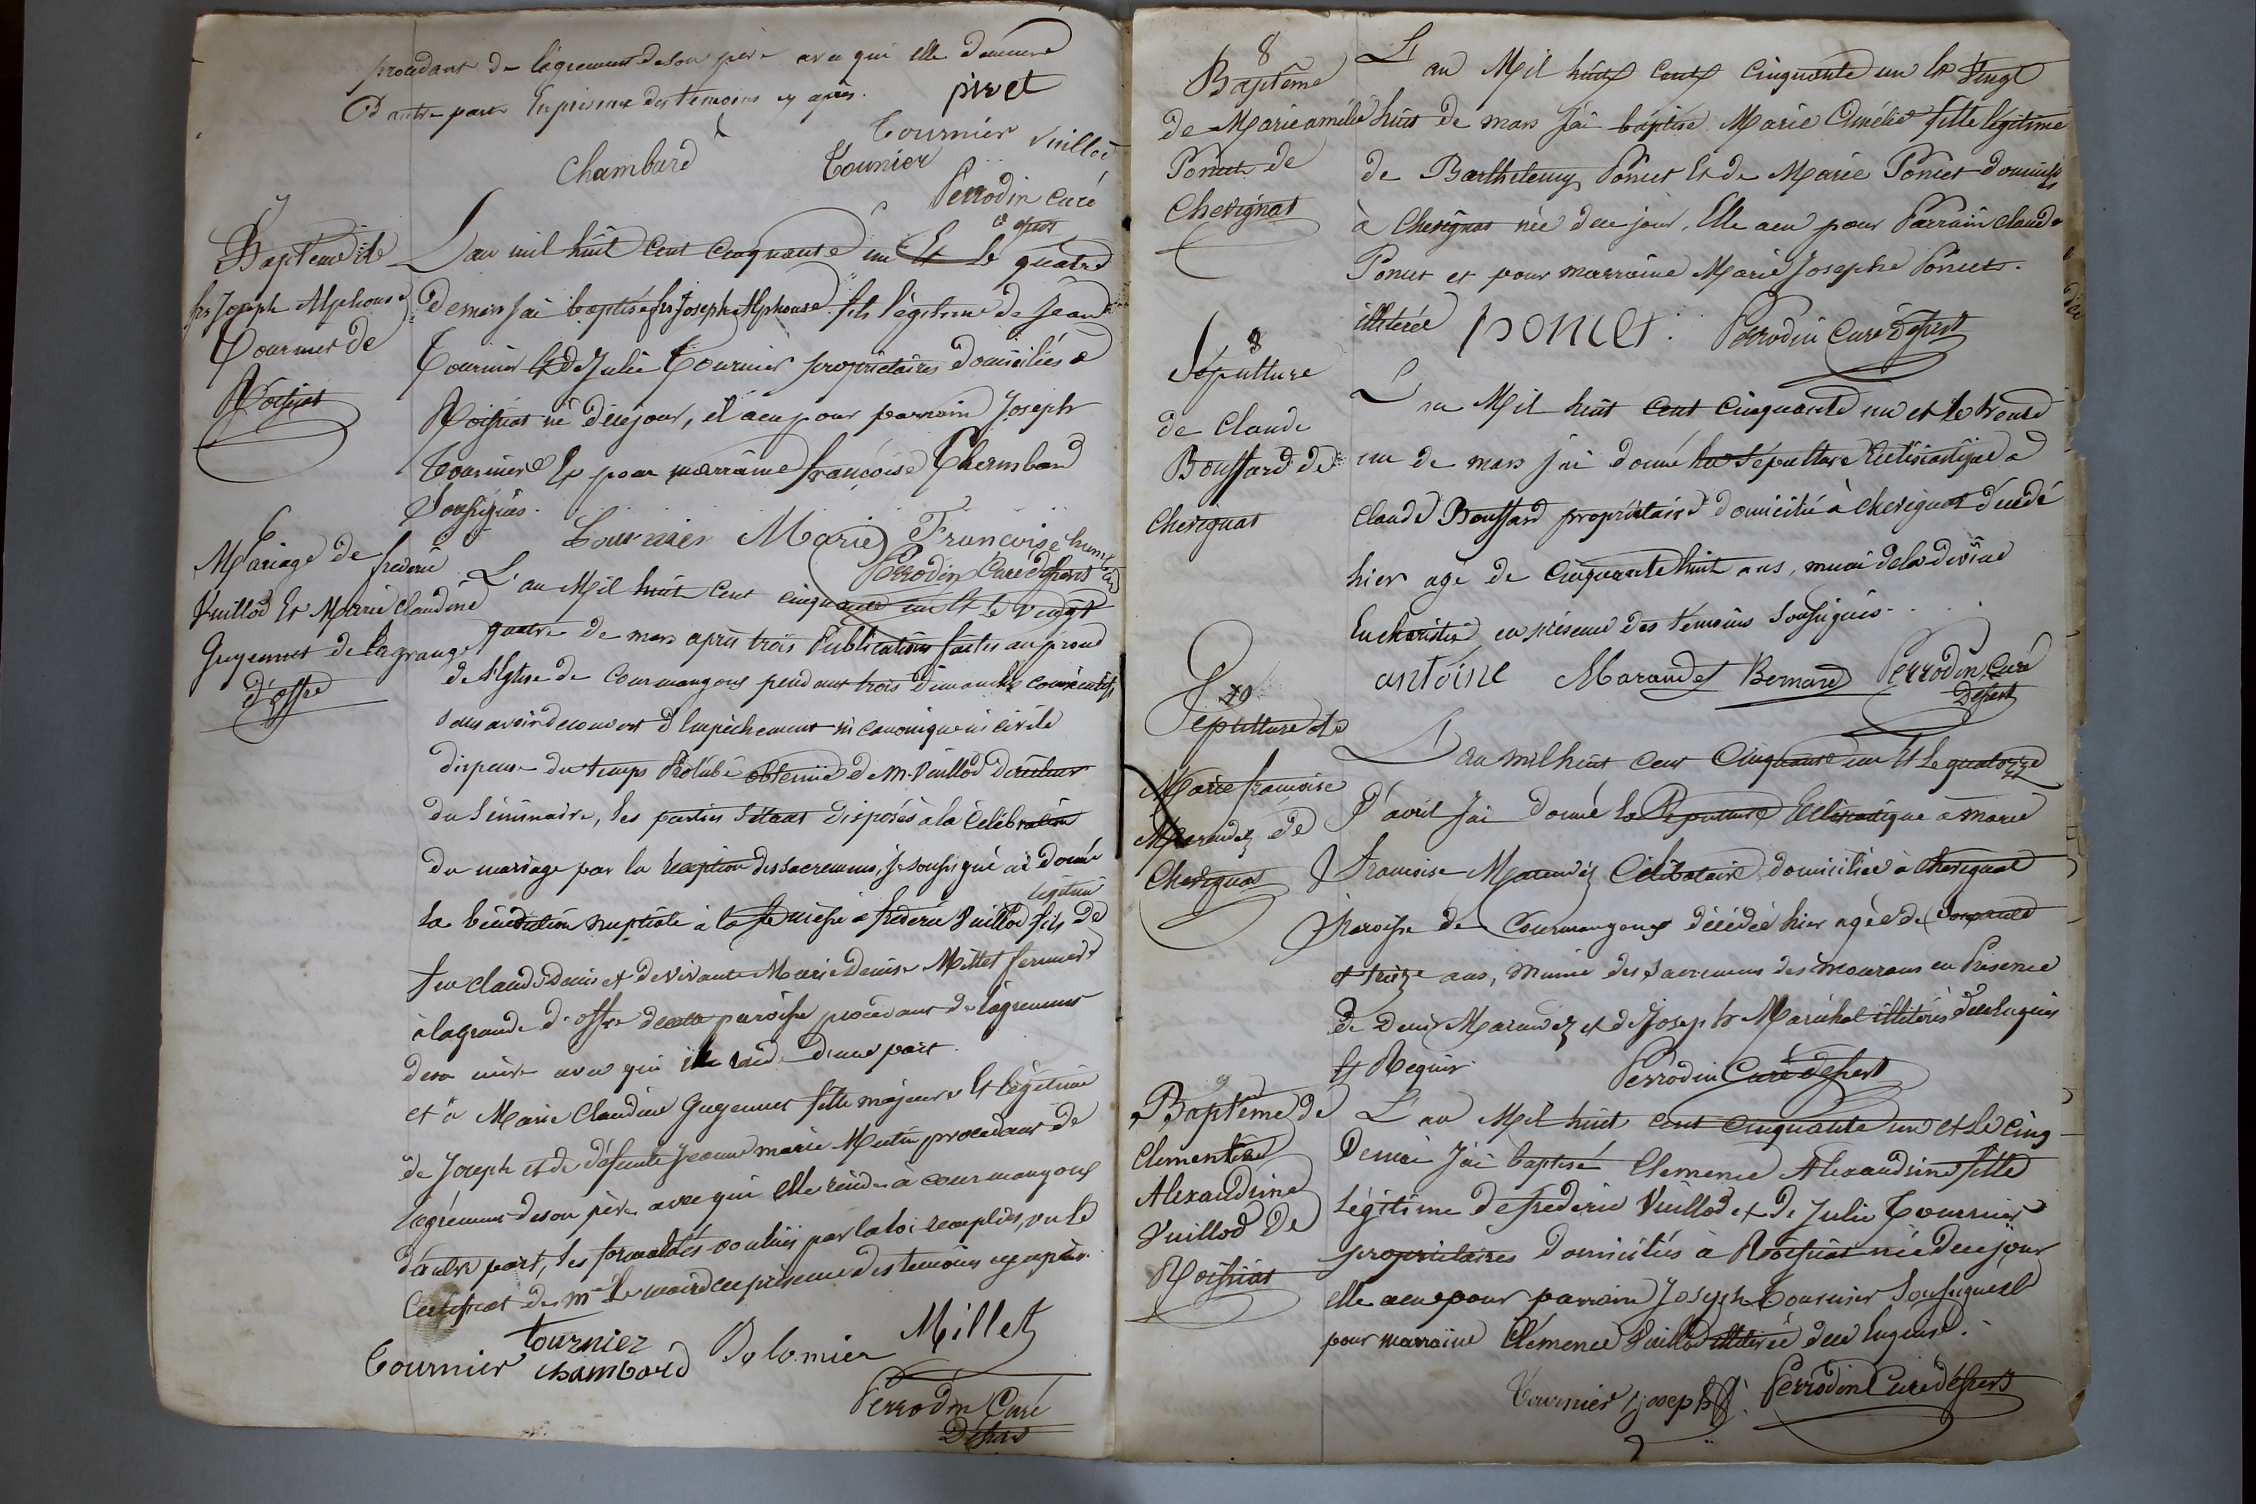 procedant de l'agrement de son père avec qui elle demeure
D'autre part En présence des témoins cy après.
pivet
Tournier Vuillod
chambard Tounier
Perrodin curé
7
Baptême de
frs Joseph Alphonse
Tournier de
Roissiat
L'an mil huit cent cinquante un Et Le quatre
de mars j'ai baptisé frs Joseph Alphonse fils légitime de Jean
Tournier Et De Julie Tournier propriétaires domiciliés a
Roissiat né de ce jour, il a eu pour parrain Joseph
Tournier Et pour marraine françoise Chambard
Soussignés.
Tournier Marie Françoise
Perrodin Curé
6
Mariage de
frederic
Vuillod Et Marie Claudine
Guyennet de lagrange
d'offre
L'an Mil huit cent cinquante un Et le vingt
quatre de mars après trois Publications faites au prône
de l'Eglise de Courmangoux pendant trois Dimanches consécutifs
sans avoir decouvert d'Empêchement ni canonique ni civile
dispense du temps Prohibé obtenue de M. Vuillod Directeur
du Séminaire, les parties s'étant disposés à la Célébration
du mariage par la reception des sacrements, je soussigné ai donné
légitime
la bénédiction nuptiale à frederic Vuillod fils de
feu claude Denis et de vivante Marie Denise Millet fermiers
à lagrande d'offre paroisse procedant de l'agrement
de sa mère avec qui D'une part.
et à Marie Claudine Guyennet fille majeure Et légitime
de Joseph et de défunte Jeanne marie procedant de
l'agrément de son père avec qui elle réside à courmangoux
d'autre part, les formalités voulues par la loi remplies, vu le
Certificat de Mr Le maire en présence des temoins cy après.
Tournier Tournier chambard Dolomier Millet
Perrodin Curé
8
Baptême
de Marie amélie
Poncet de
Chevignat
L'an Mil huit Cent Cinquante un le vingt
huit de mars j'ai baptisé Marie Amélie fille légitime
de Barthelemy Poncet Et de Marie Poncet domiciliés
à Chevignat née de ce jour, Elle a eu pour Parrain claude
Poncet et pour marraine Marie Josephe Poncet.
illiterée poncet. Perrodin Curé
8
Sépulture
de Claude
Bouffard de
Chevignat
L'an Mil huit cent Cinquante un et le trente
un de mars j'ai donné la Sépulture Ecclésiastique a
Claude Bouffard propriétaire domicilié à Chevignat décédé
hier agé de Cinquante huit ans, muni de la divine
Eucharistie en présence des témoins Soussignés.
antoine Marandet Bernard Perrodin Curé
Sépulture de
Marie françoise
de
Chevignat
L'an mil huit cent Cinquante un Et Le quatorze
D'avril j'ai donné la Sépulture Ecclésiastique à marie
françoise Célibataire domiciliée à Chevignat
Paroisse de Courmangoux décédée hier agée de Soixante
et treize ans, munie des sacremens des mourans en Présence
de Denis et de Joseph Maréchal illitérés de ce Enquis
Et Requis. Perrodin Curé
9
Baptême de
Clementine
Alexandrine
Vuillod De
Roissiat
L'an Mil huit cent Cinquante un et Le Cinq
De mai j'ai baptisé Clemence Alexandrine fille
légitime de frederic Vuillod et De Julie Tournier
propriétaires Domiciliés à Roissiat née de ce jour
elle a eu pour parrain Joseph Tournier Soussigné et
pour marraine Clemence Vuillod illiterée de ce Enquise.
Tournier joseph. Perrodin Curé